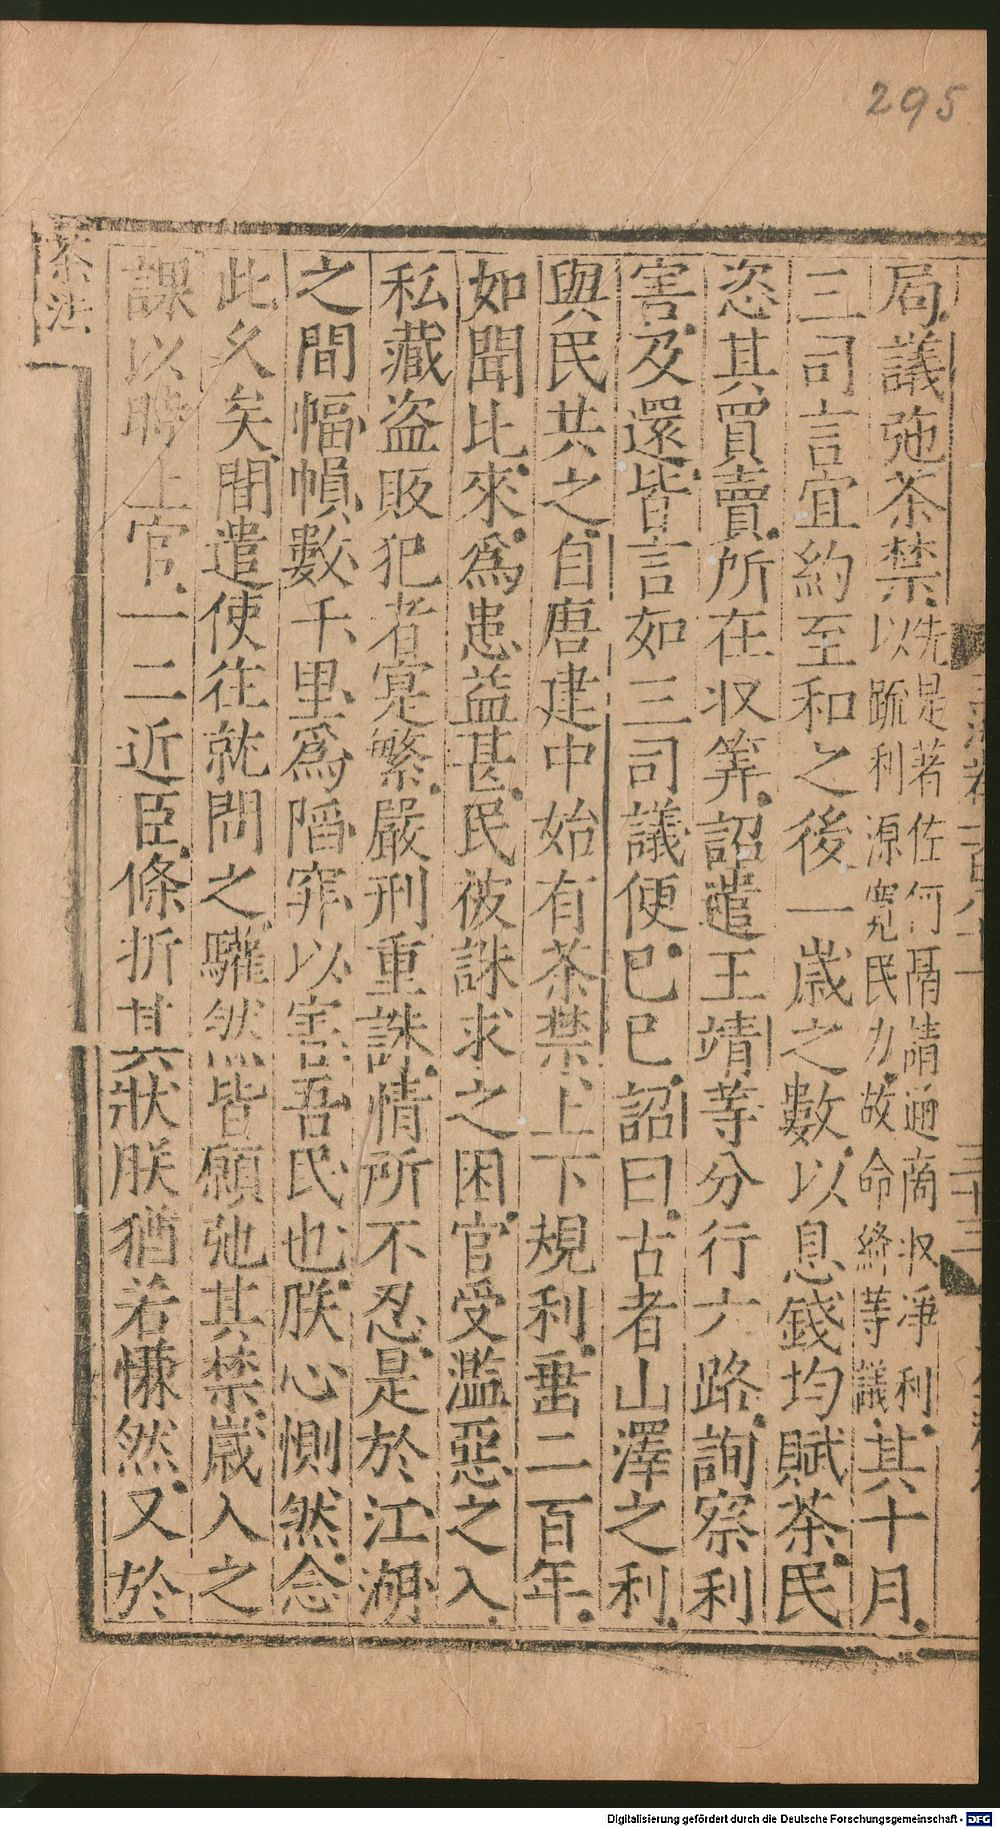 295
局議弛茶禁以疏利源寬民力故命絳等議其十月
先是著佐何鬲請通商収凈利
三司言宜約至和之後一歲之數以息錢均賦茶民
恣其買賣所在収筭詔遣王靖等分行六路詢察利
害及還皆言如三司議便巳巳詔曰古者山澤之利
與民共之自唐建中始有茶禁上下規利垂二百年
如聞比來爲患益甚民被誅求之困官受濫惡之入
私藏盜販犯者寔繁嚴刑重誅情所不忍是於江湖
之間幅幀數千里爲陷穽以害吾民也朕心惻然念
此久矣間遣使往就問之驩然皆願弛其禁歲入之
課以時上官一二近臣條折其狀朕猶若慊然又於
茶法
Digitalisierung gefördert durch die Deutsche Forschungsgemeinschaft - DFG